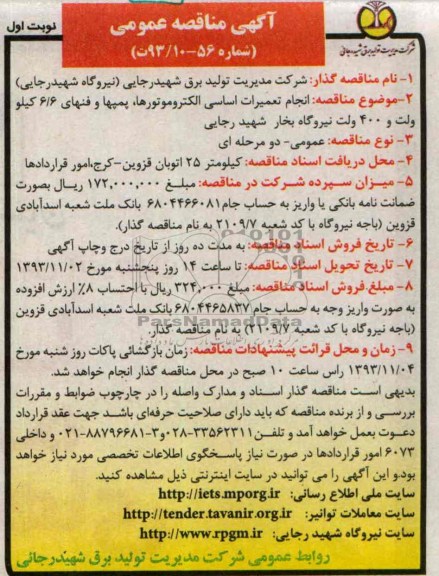 آگهی مناقصه عمومی
(شماره ۵۶-۹۳/۱۰ت)
نوبت اول
شرکت مدیریت تولید برق شهید رجائی
۱- نام مناقصه گذار: شرکت مدیریت تولید برق شهیدرجایی (نیروگاه شهیدرجایی)
۲-موضوع مناقصه: انجام تعمیرات اساسی الکتروموتورها، پمپها و فنهای ۶/۶ کیلو
ولت و ۴۰۰ ولت نیروگاه بخار شهید رجایی
۳- نوع مناقصه: عمومی- دو مرحله ای
۴- محل دریافت اسناد مناقصه: کیلومتر ۲۵ اتوبان قزوین-کرج،امور قراردادها
۵- میزان سپرده شرکت در مناقصه: مبلغ ۱۷۲,۰۰۰,۰۰۰ ریال بصورت
ضمانت نامه بانکی یا واریز به حساب جام ۶۸۰۴۴۶۶۰۸۱ بانک ملت شعبه اسدآبادی
قزوین (باجه نیروگاه با کد شعبه ۲۱۰۹/۷ به نام مناقصه گذار).
۶- تاریخ فروش اسناد مناقصه: به مدت ده روز از تاریخ درج وچاپ آگهی
۷- تاریخ تحویل اسناد مناقصه: تا ساعت ۱۴ روز پنجشنبه مورخ ۱۳۹۳/۱۱/۰۲
۸- مبلغ فروش اسناد مناقصه: مبلغ ۳۲۴,۰۰۰ ریال با احتساب ۸٪ ارزش افزوده
به صورت واریز وجه به حساب جام ۶۸۰۴۴۶۵۸۳۷ بانک ملت شعبه اسدآبادی قزوین
(باجه نیروگاه با کد شعبه ۲۱۰۹/۷) به نام مناقصه گذار.
۹- زمان و محل قرائت پیشنهادات مناقصه: زمان بازگشائی پاکات روز شنبه مورخ
۱۳۹۳/۱۱/۰۴ راس ساعت ۱۰ صبح در محل مناقصه گذار انجام خواهد شد.
بدیهی است مناقصه گذار اسناد و مدارک واصله را در چارچوب ضوابط و مقررات
بررسی و از برنده مناقصه که باید دارای صلاحیت حرفه‌ای باشد جهت عقد قرارداد
دعوت بعمل خواهد آمد و تلفن ۳۳۵۶۲۳۱۱-۰۲۸ و ۳-۸۸۷۹۶۶۸۱-۰۲۱ و داخلی
۶۰۷۳ امور قراردادها در صورت نیاز پاسخگوی اطلاعات تخصصی مورد نیاز خواهد
بود.و این آگهی را می توانید در سایت اینترنتی ذیل مشاهده کنید.
سایت ملی اطلاع رسانی: http://iets.mporg.ir
سایت معاملات توانیر: http://tender.tavanir.org.ir
سایت نیروگاه شهید رجایی: http://www.rpgm.ir
روابط عمومی شرکت مدیریت تولید برق شهیدرجائی